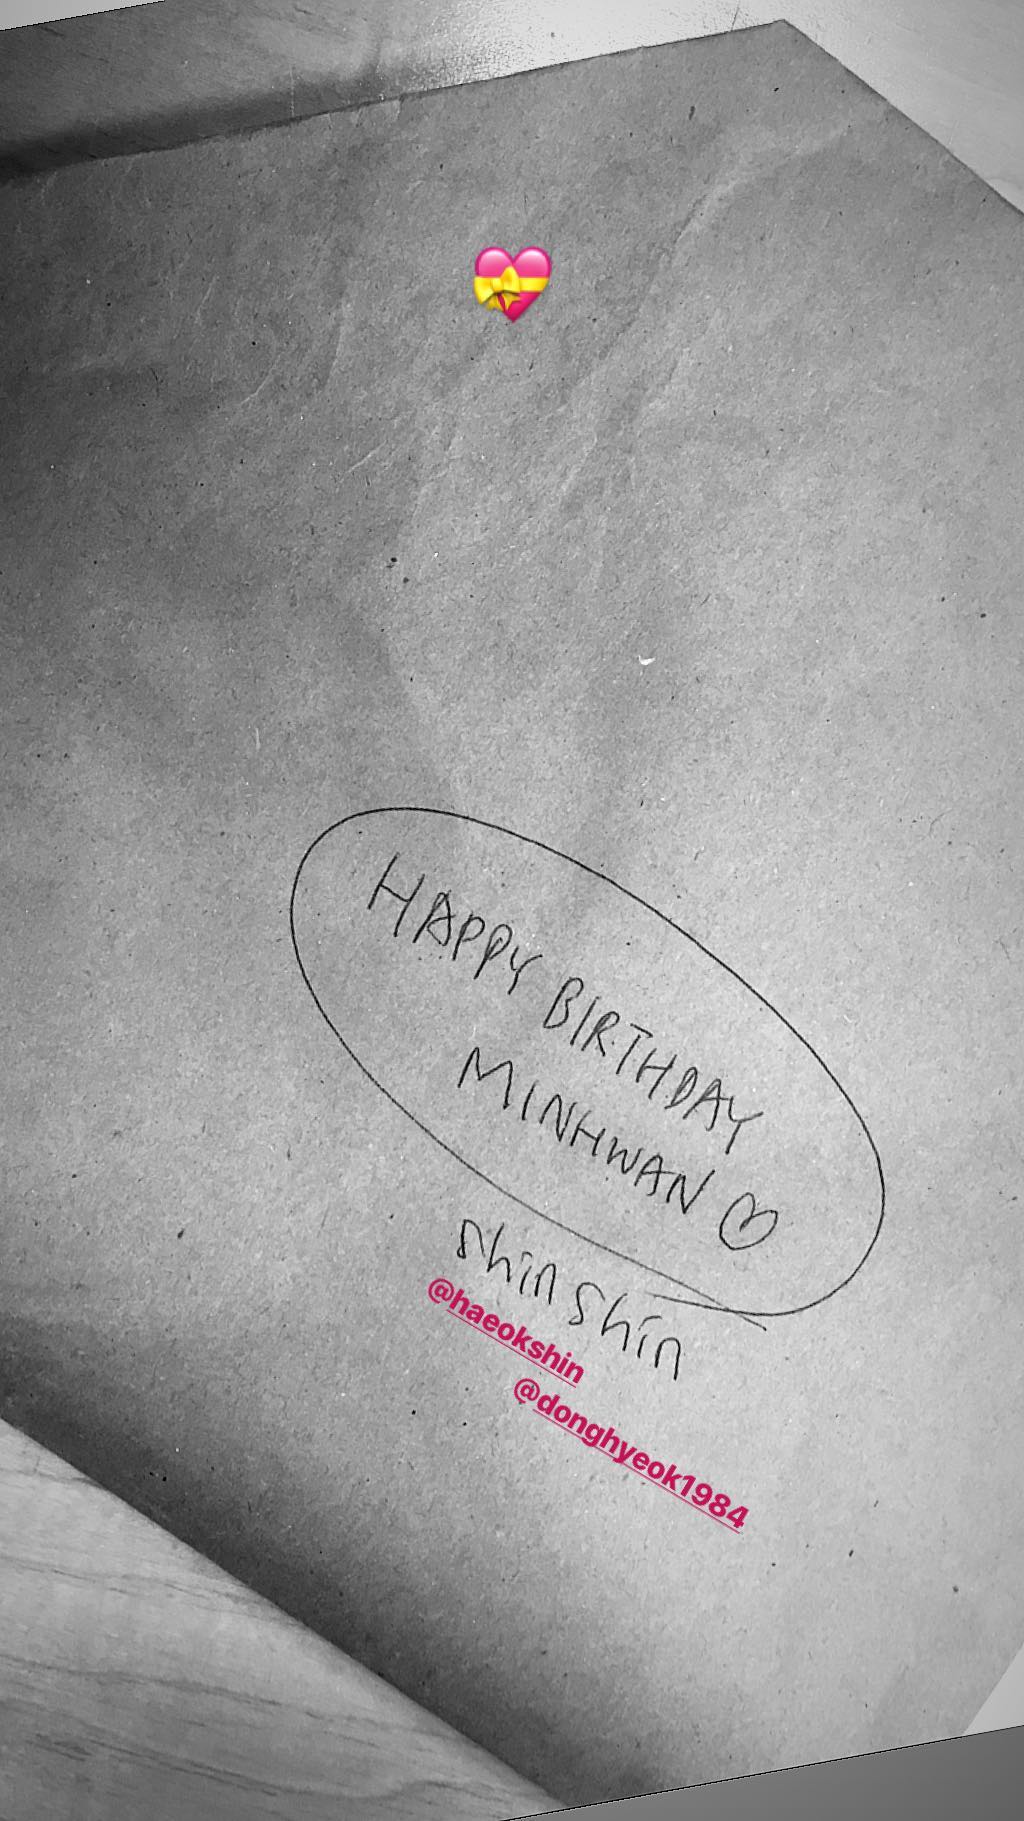 HAPPY BIRTHDAY
MINHWAN ♡
shin shin
@haeokshin
@donghyeok1984